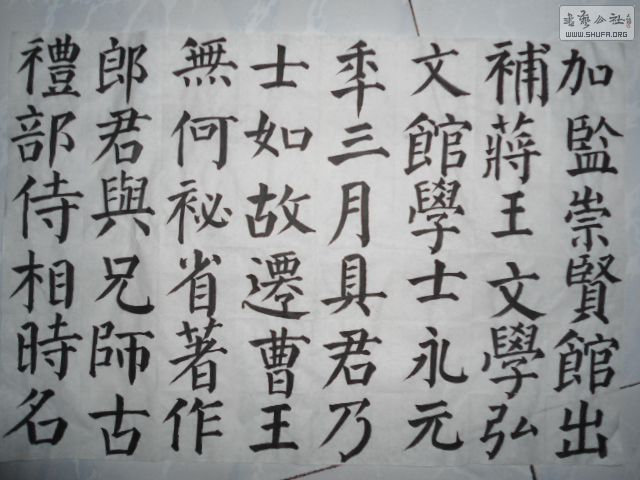 加監崇賢館出
補蔣王文學弘
文館學士永元
年三月具君乃
士如故遷曹王
無何祕省著作
郎君與兄師古
禮部侍相時名
書藝公社
WWW.SHUFA.ORG